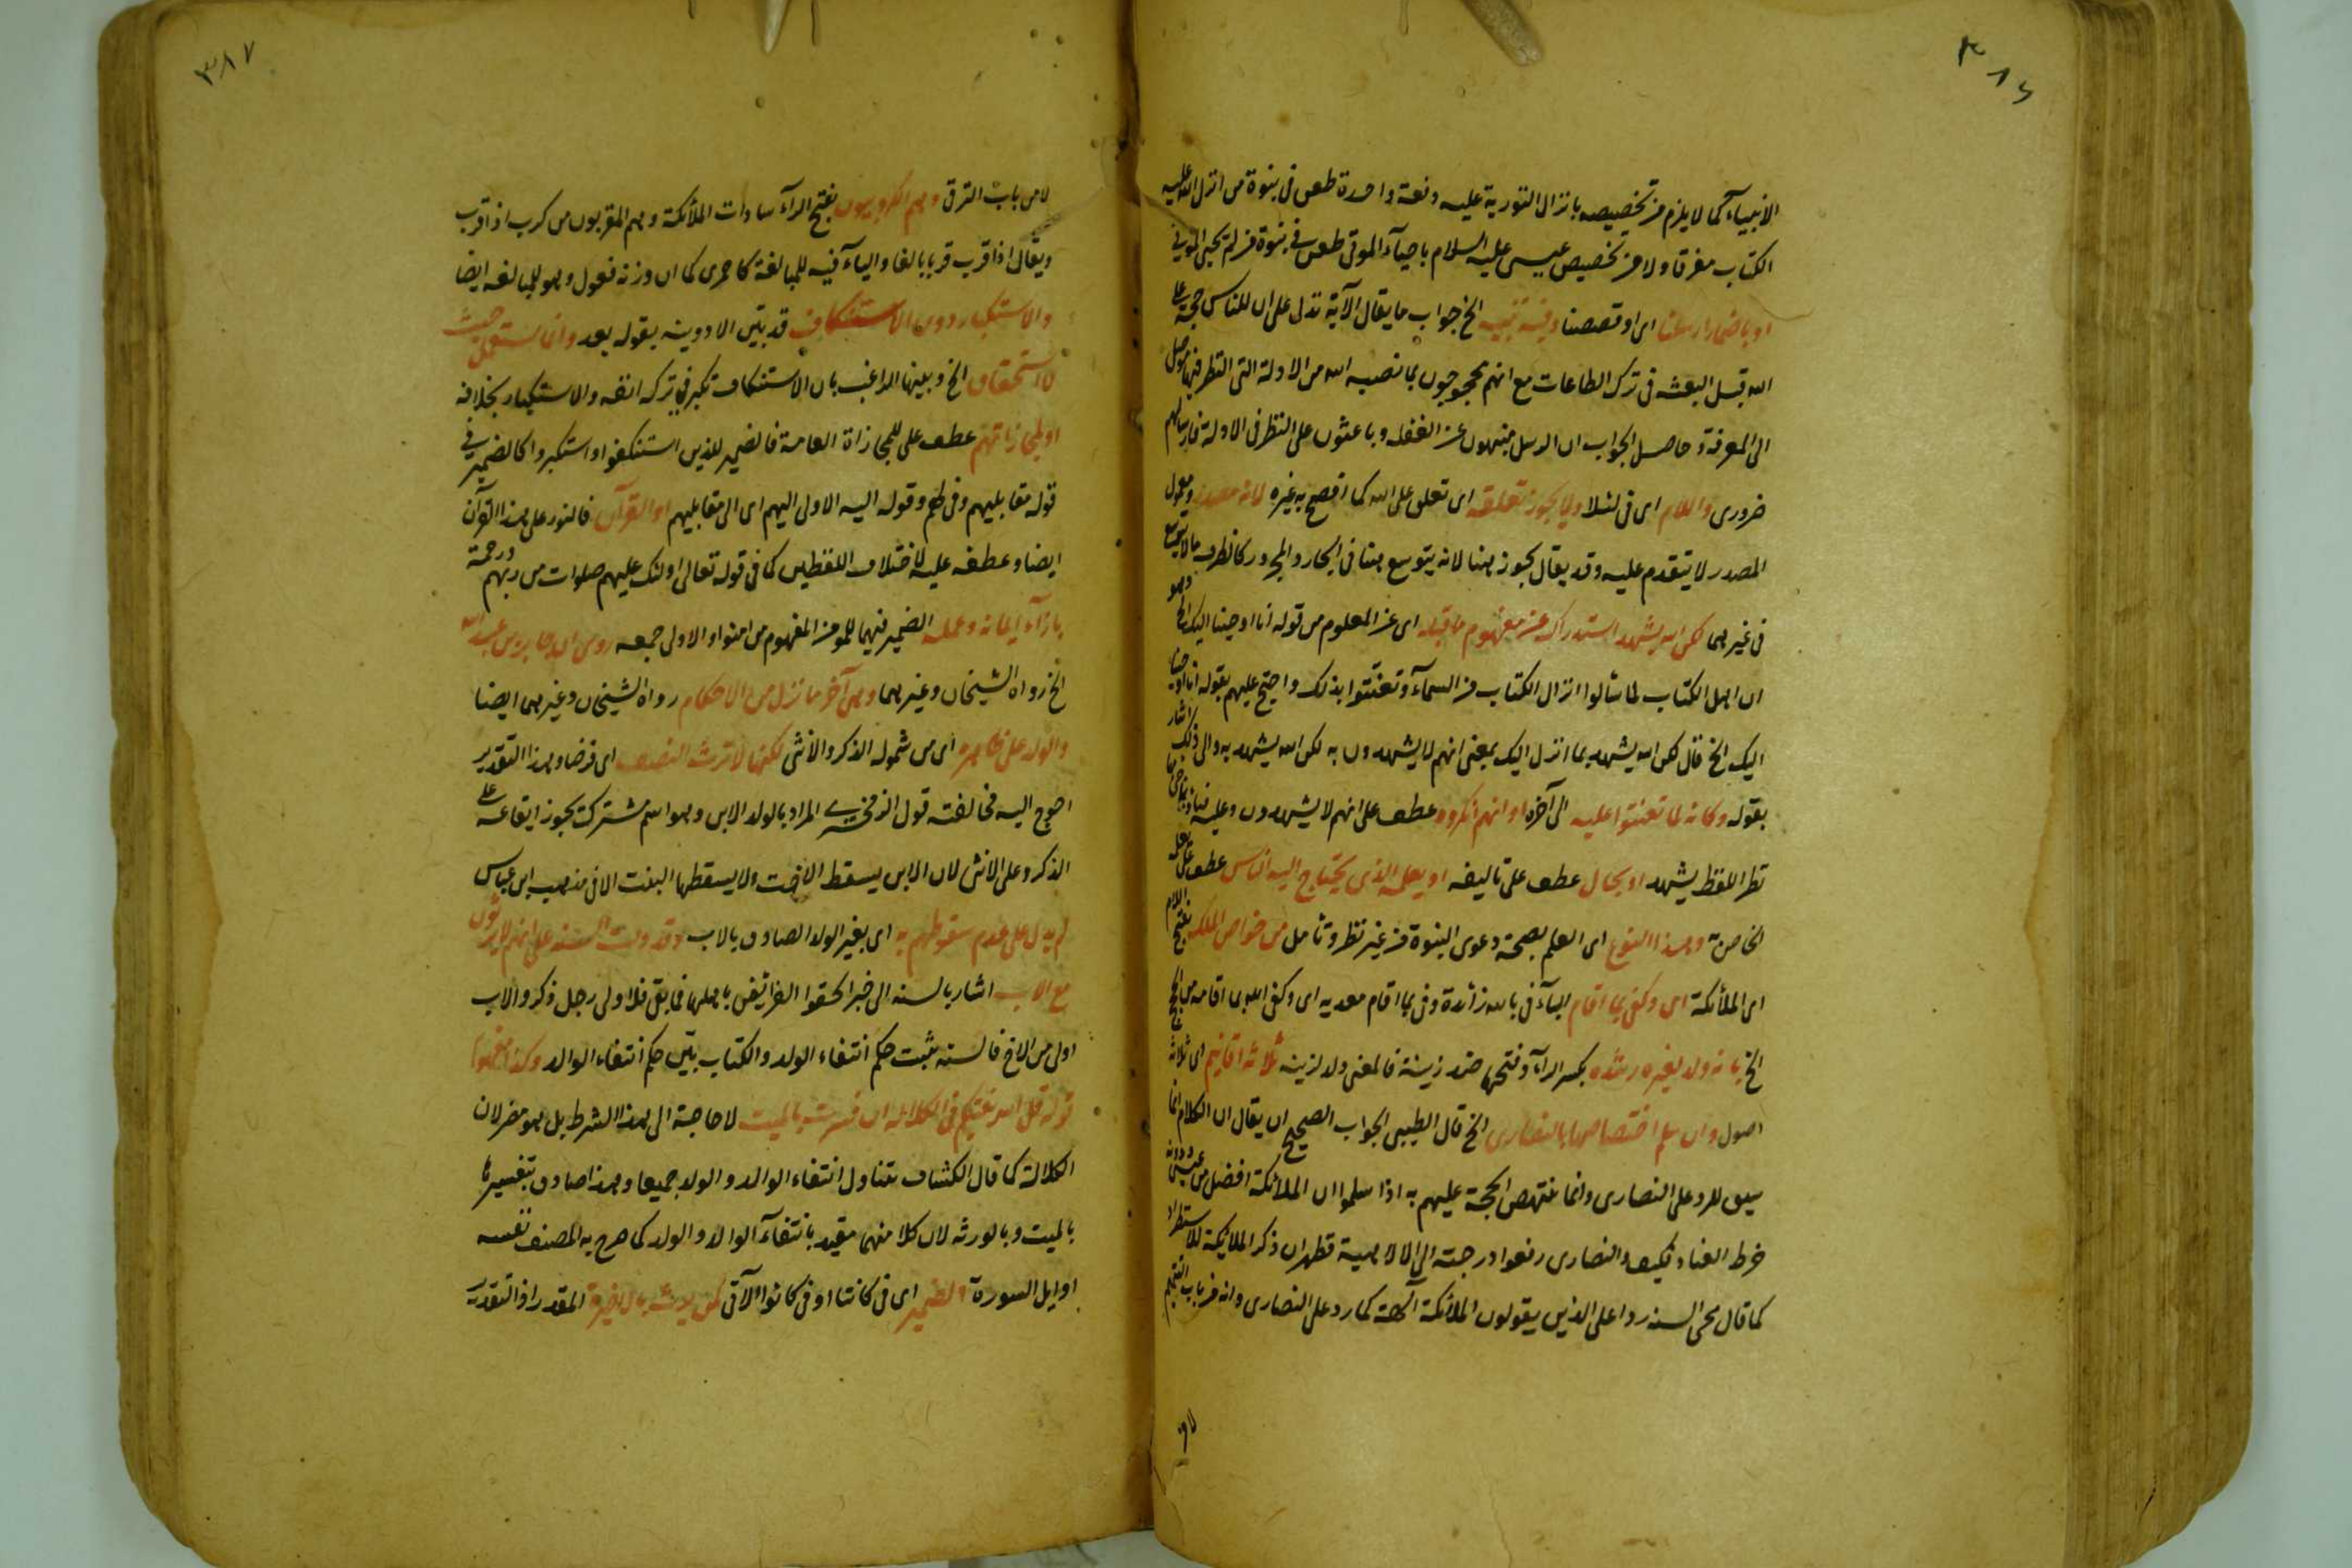 ٣٨٦
الانبياء كما لا يلزم من تخصيصه بانزال التورية عليه دفعة واحدة طعن في نبوة من انزل الله عليه
الكتاب مفرقا ولا من تخصيص عيسى عليه السلام باحياء الموتى طعن في نبوة من لم يحيى الموتى
او باضمار ارسلنا اى او قصصنا وفيه تنبيه الخ جواب ما يقال الآية تدل على ان للناس حجة على
الله قبل البعثة في ترك الطاعات مع انهم محجوجون بما نصبه الله من الادلة التى النظر فيها موصل
الى المعرفة وحاصل الجواب ان الرسل منبهون عن الغفلة وباعثون على النظر في الادلة فارسالهم
ضرورى واللام اى في لئلا ولا يجوز تعلقه اى تعلق على الله كما افصح به غيره لانه مصدر ومعمول
المصدر لا يتقدم عليه وقد يقال يجوز هنا لانه يتوسع هنا في الجار والمجرور كالظرف ما لا يتوسع
في غيرهما لكن الله يشهد استدراك عن مفهوم ما قبله اى عن المعلوم من قوله انا اوحينا اليك الخ وهو
ان اهل الكتاب لما سألوا انزال الكتاب من السماء وتعنتوا بذلك واحتج عليهم بقوله انا اوحينا
اليك الخ قال لكن الله يشهد بما انزل اليك بمعنى انهم لا يشهدون به لكن الله يشهد به والى ذلك اشار
بقوله وكانه لما تعنتوا عليه الى آخره او انهم انكروه عطف على انهم لا يشهدون وعليه
نظر اللفظ يشهد او بحال عطف على تاليفه او بعلمه الذى يحتاج اليه الناس عطف على بعلمه
الخاص به وهذا النوع اى العلم بصحة دعوى النبوة من غير نظر وتأمل من خواص الملك بفتح اللام
اى الملائكة اى وكفى بما اقام الباء في بالله زائدة وفي بما اقام معدية اى وكفى الله بما اقامه من الحجج
الخ بانه ولد لغيره رشده بكسر الراء وفتحها ضد زنية فالمعنى ولد لزنية ثلاثة اقانيم اى ثلاثة
اصول وان سلم اختصاصها بالنصارى الخ قال الطيبى الجواب الصحيح ان يقال ان الكلام انما
سيق للرد على النصارى وانما ينتهض الحجة عليهم به اذا سلموا ان الملائكة افضل من عيسى ودونه
خرط القتاد فكيف والنصارى رفعوا درجته الى الالهية فظهر ان ذكر الملائكة للاستطراد
كما قال محى السنة ردا على الذين يقولون الملائكة آلهة كما رد على النصارى وانه من باب التتميم
لا من
٣٨٧
لا من باب الترقى وهم الكروبيون بفتح الراء سادات الملائكة وهم المقربون من كرب اذا قرب
ويقال اذا قرب قربا بالغا والياء فيه للمبالغة كاحمرى كما ان وزنه فعول وهو للمبالغة ايضا
والاستكبار دون الاستنكاف قد بين الادونية بقوله بعد وانما يستعمل حيث
لا استحقاق الخ وبينها الراغب بان الاستنكاف تكبر في تركه انفة والاستكبار بخلافه
او لمجازاتهم عطف على للمجازاة العامة فالضمير للذين استنكفوا واستكبروا كالضمير في
قوله مقابليهم وفي لهم وقوله اليه الاولى اليهم اى الى مقابليهم او القرآن فالنور على هذا القرآن
ايضا وعطفه عليه لاختلاف اللفظين كما في قوله تعالى اولئك عليهم صلوات من ربهم ورحمة
بازاء ايمانه وعمله الضمير فيهما للمؤمن المفهوم من امنوا والاولى جمعه روى ان جابر بن عبد الله
الخ رواه الشيخان وغيرهما وهى آخر ما نزل من الاحكام رواه الشيخان وغيرهما ايضا
والولد على ظاهره اى من شموله الذكر والأنثى لكنها لا ترث النصف اى فرضا وهذا التقدير
احوج اليه مخالفته قول الزمخشرى المراد بالولد الابن وهو اسم مشترك يجوز ايقاعه على
الذكر وعلى الانثى لان الابن يسقط الاخت ولا يسقطها البنت الا في مذهب ابن عباس
لم يدل على عدم سقوطهم به اى بغير الولد الصادق بالاب وقد دلت السنة على انهم لا يرثون
مع الاب اشار بالسنة الى خبر الحقوا الفرائض باهلها فما بقى فلاولى رجل ذكر والاب
اولى من الاخ فالسنة تثبت حكم انتفاء الولد والكتاب بين حكم انتفاء الوالد وكذا مفهوم
قوله قل الله يفتيكم في الكلالة ان فسرت بالميت لا حاجة الى هذا الشرط بل هو مضر لان
الكلالة كما قال الكشاف يتناول انتفاء الوالد والولد جميعا وهذا صادق بتفسيرها
بالميت وبالورثة لان كلا منهما مقيد بانتفاء الوالد والولد كما صرح به المصنف نفسه
اوايل السورة والضمير اى في كانتا او في كانوا الآتى لمن يرث بالاخوة المقدر اذ التقدير